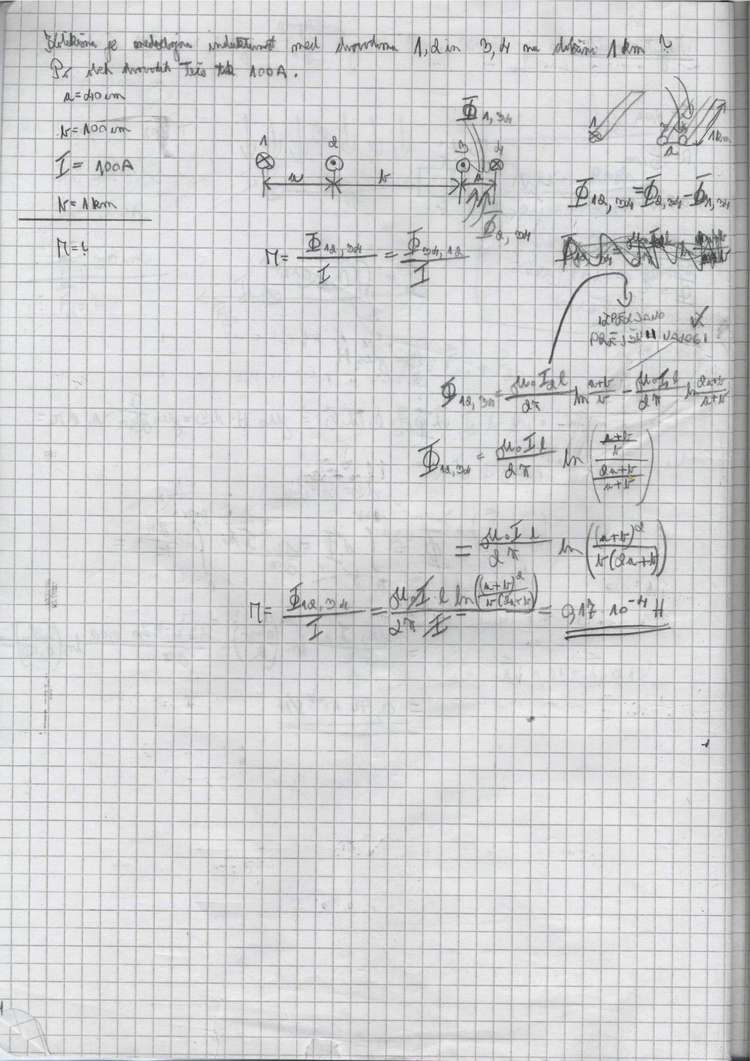 Kolikšna je medsebojna induktivnost med dvovodoma 1,2 in 3,4 na dolžini 1 km ?
Po vseh vodotih teče tok 100A.
a = 40 cm
b = 100 cm
I = 100A
l = 1 km
M = ?
1 2 3 4
a b a
Φ1,34
Φ2,34
1km
a
M = Φ12,34 / I = Φ34,12 / I
Φ12,34 = Φ2,34 - Φ1,34
IZPELJANO
PREJŠNJI NALOGI
Φ12,34 = μ0 I2 l / 2π ln (a+b)/b - μ0 I1 l / 2π ln (2a+b)/(a+b)
Φ12,34 = μ0 I l / 2π ln (((a+b)/b) / ((2a+b)/(a+b)))
= μ0 I l / 2π ln ((a+b)² / b(2a+b))
M = Φ12,34 / I = μ0 I l ln((a+b)² / b(2a+b)) / 2π I = 0,17 10⁻⁴ H